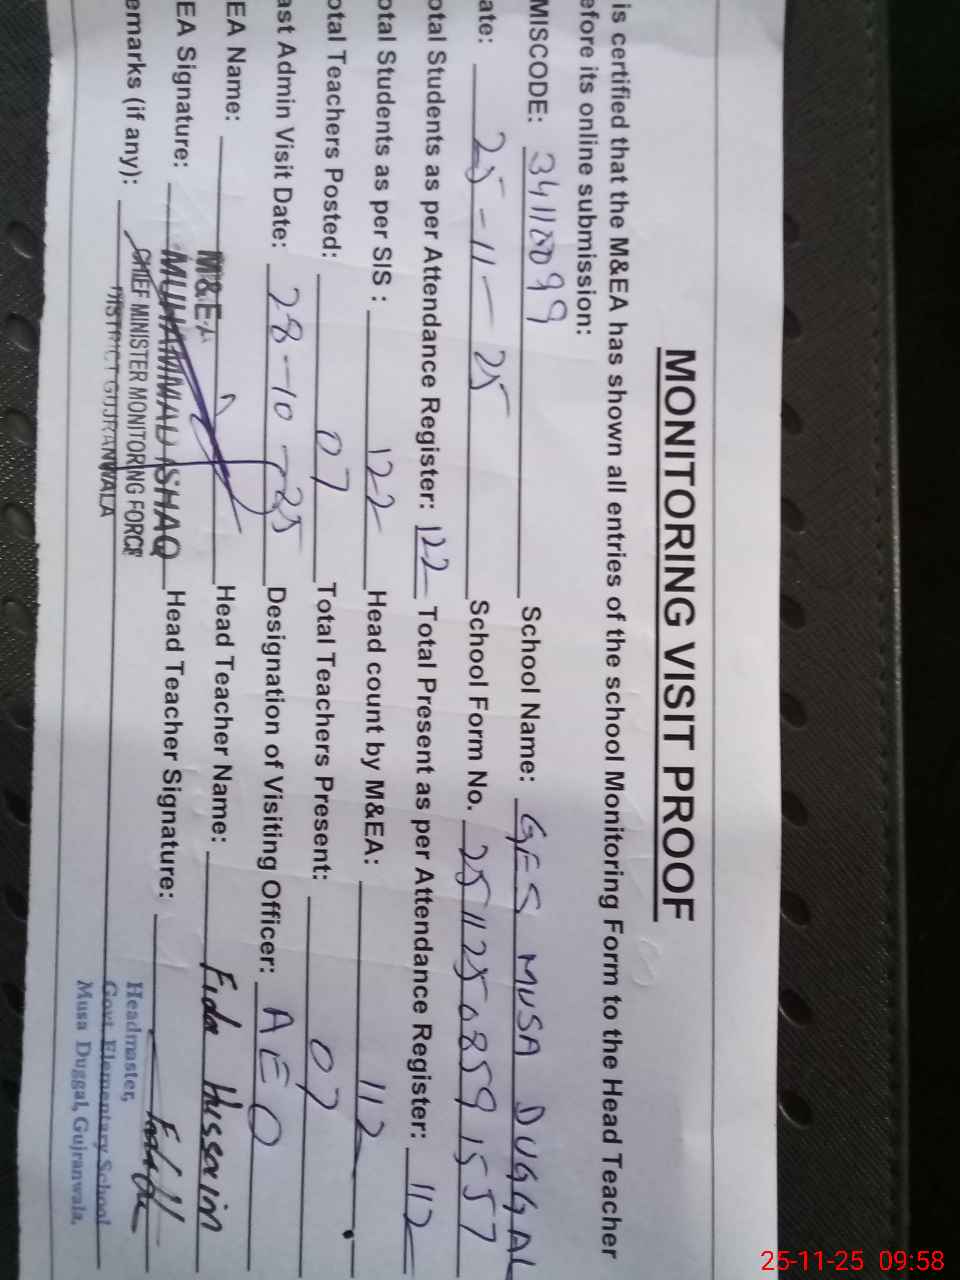 MONITORING VISIT PROOF
is certified that the M&EA has shown all entries of the school Monitoring Form to the Head Teacher
efore its online submission:
MISCODE: 34110099 School Name: GES MUSA DUGGAL
ate: 25-11-25 School Form No. 25112508591557
otal Students as per Attendance Register: 122 Total Present as per Attendance Register: 112
otal Students as per SIS : 122 Head count by M&EA: 112
otal Teachers Posted: 07 Total Teachers Present: 07
ast Admin Visit Date: 28-10-25 Designation of Visiting Officer: AEO
EA Name: M&EA Head Teacher Name: Fida Hussain
EA Signature: MUHAMMAD ISHAQ Head Teacher Signature:
emarks (if any): CHIEF MINISTER MONITORING FORCE
DISTRICT GUJRANWALA
Headmaster,
Govt. Elementary School
Musa Duggal, Gujranwala.
25-11-25 09:58